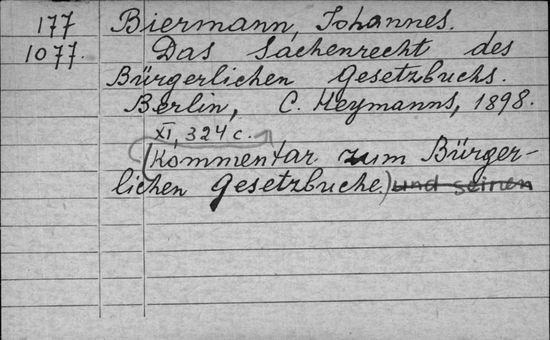 177 Biermann, Johannes.
1077. Das Sachenrecht des
Bürgerlichen Gesetzbuchs.
Berlin, C. Heymanns, 1898.
XI, 324 c.
(Kommentar zum Bürger-
lichen Gesetzbuche) und seinen